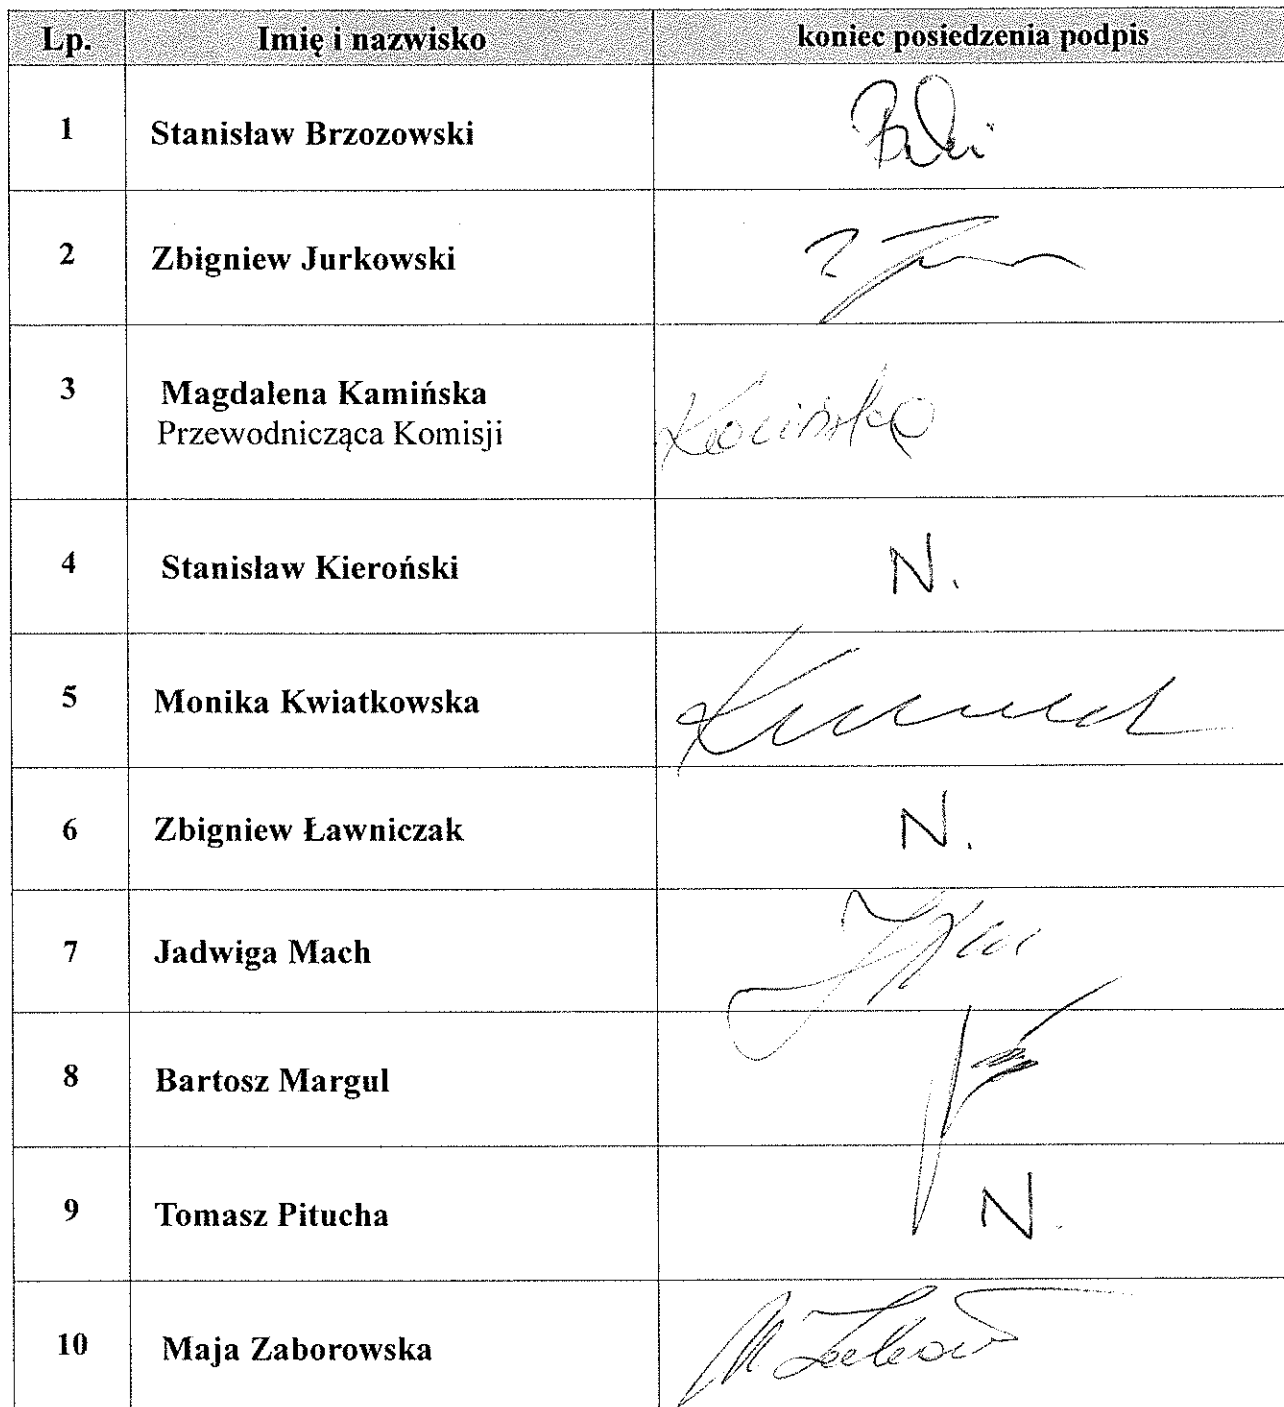 Lp. Imię i nazwisko koniec posiedzenia podpis
1 Stanisław Brzozowski
2 Zbigniew Jurkowski
3 Magdalena Kamińska
Przewodnicząca Komisji
4 Stanisław Kieroński N.
5 Monika Kwiatkowska
6 Zbigniew Ławniczak N.
7 Jadwiga Mach
8 Bartosz Margul
9 Tomasz Pitucha N.
10 Maja Zaborowska